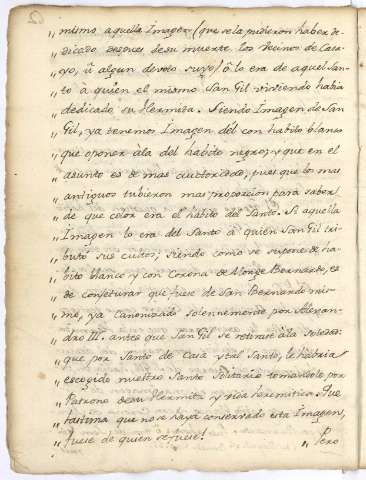 „ mismo aquella Imagen (que se la pudieron haber de-
„ dicado despues de su muerte los Vecinos de Caza-
„ yo, ù algun devoto suyo) ô lo era de aquel San-
„ to à quien el mismo San Gil viviendo habia
„ dedicado su Hermita. Siendo Imagen de San
„ Gil, ya tenemos Imagen dèl con habito blanco
„ que oponer àla del habito negro; y que en el
„ asunto es de mas auctoridad, pues que los mas
„ antiguos tubieron mas proporcion para saber
„ de que color era el habito del Santo. Si aquella
„ Imagen lo era del Santo à quien San Gil tri-
„ butò sus cultos; siendo como se supone de ha-
„ bito blanco y con Corona de Monge Bernardo, es
„ de conjeturar que fuese de San Bernardo mis-
„ mo, ya Canonizado solennemente por Alexan-
„ dro III. antes que San Gil se retirase àla soledad:
„ que por Santo de Casa y tal Santo, le habria
„ escogido nuestro Santo Solitario tomandole por
„ Patrono de su Hermita y vida heremitica. Que
„ lastima que no se haya conservado esta Imagen,
„ fuese de quien se fuese!
„ Pero